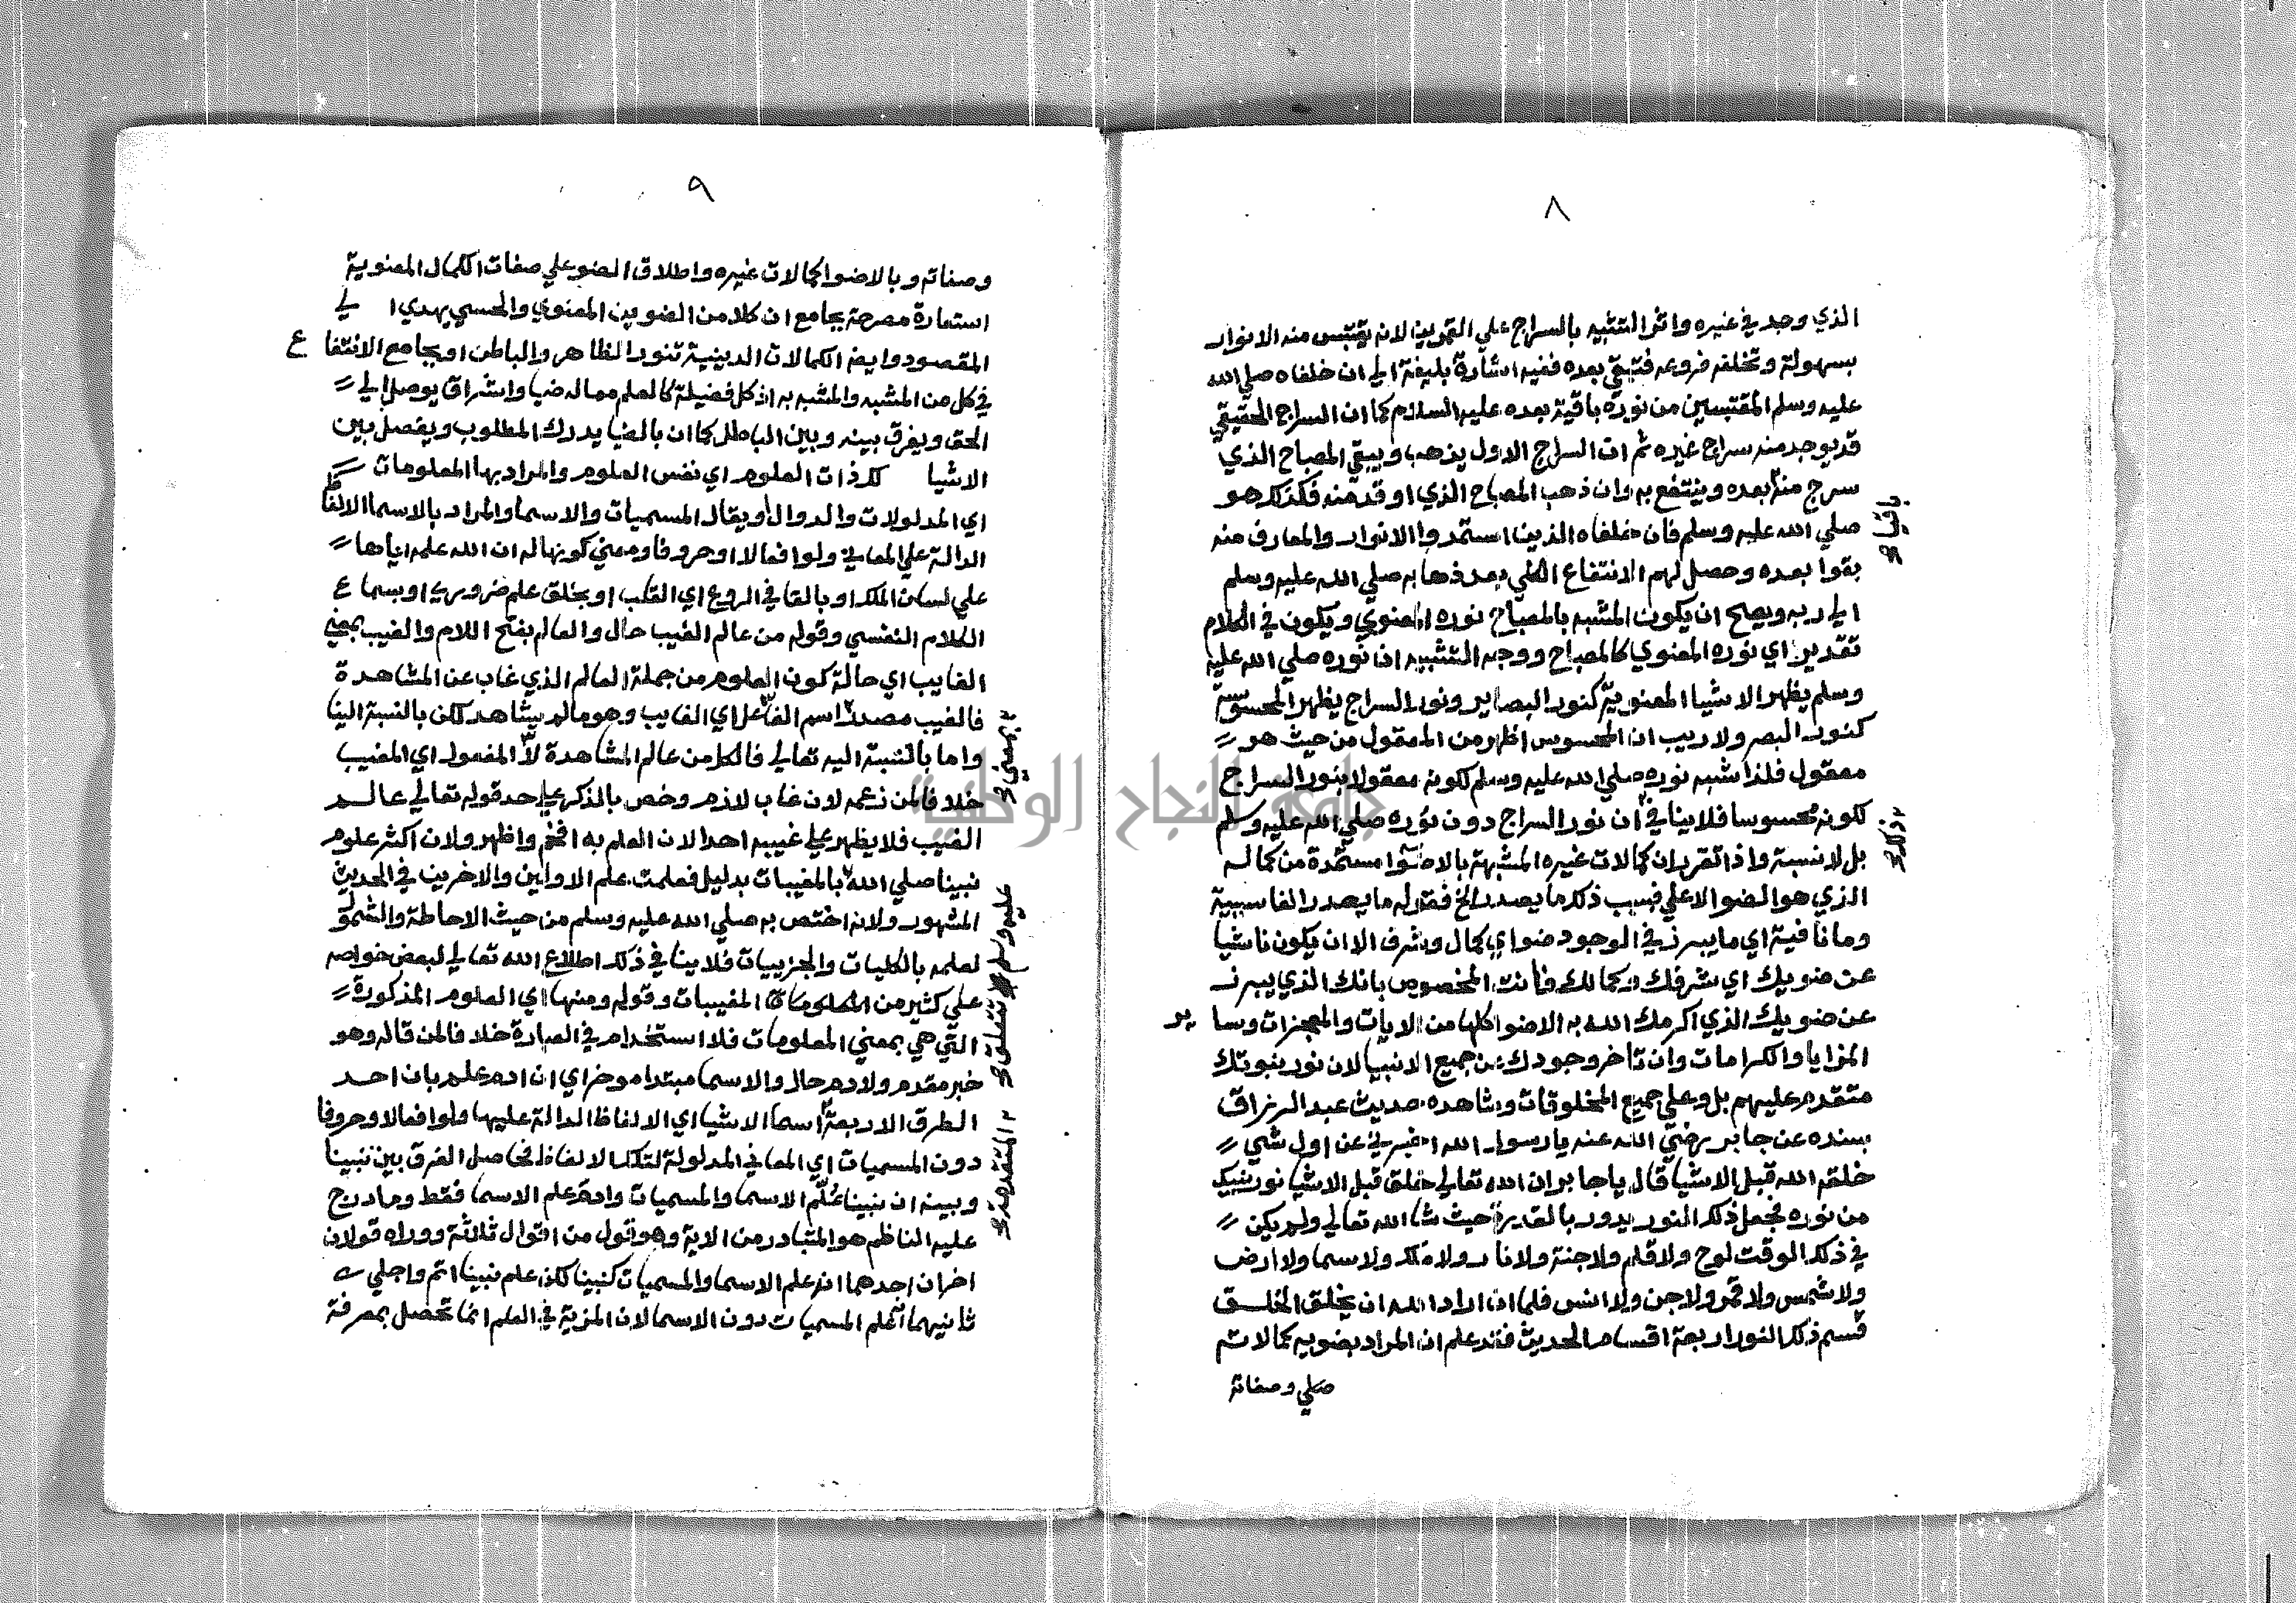 ٨
الذي وجد في غيره واثر التشبيه بالسراج علي القمرين لانه يقتبس منه الانوار
بسهولة وتخلفه فروعه فتبقي بعده ففيه اشارة بليغة الي ان خلفاه صلي الله
عليه وسلم المقتبسين من نوره باقية بعده عليه السلام كما ان السراج الحقيقي
قد يوجد منه سراج غيره ثم ان السراج الاول يذهب ويبقي المصباح الذي
سرج منه بعده وينتفع به وان ذهب المصباح الذي اوقد منه فكذلك هو
صلي الله عليه وسلم فان خلفاه الذين استمدوا الانوار والمعارف منه
بقوا بعده وحصل لهم الانتفاع الكلي بعد ذهابه صلي الله عليه وسلم
الي ربه ويصح ان يكون المشبه بالمصباح نوره المعنوي ويكون في الكلام
تقدير اي نوره المعنوي كالمصباح ووجه التشبيه ان نوره صلي الله عليه
وسلم يظهر الاشيا المعنوية كنور البصاير ونور السراج يظهر المحسوسة
كنور البصر ولا ريب ان المحسوس اظهر من المعقول من حيث هو
معقول فلذا شبه نوره صلي الله عليه وسلم لكونه معقولا بنور السراج
لكونه محسوسا فلا ينافي ان نور السراج دون نوره صلي الله عليه وسلم
بل لا نسبة واذا تقرر ان كمالات غيره المشبهة بالاضوا مستمدة من كماله
الذي هو الضوا الاعلي فسبب ذلك ما يصدر الخ فقوله ما يصدر الفا سببية
وما نافية اي ما يبرز في الوجود ضوا اي كمال وشرف الا ان يكون ناشيا
عن ضويك اي شرفك وكمالك فانت المخصوص بانك الذي يبرز
عن ضويك الذي اكرمك الله به الاضوا كلها من الايات والمعجزات وساير
المزايا والكرامات وان تاخر وجودك عن جميع الانبيا لان نور نبوتك
متقدم عليهم بل وعلي جميع المخلوقات وشاهده حديث عبد الرزاق
بسنده عن جابر رضي الله عنه يا رسول الله اخبرني عن اول شي
خلقه الله قبل الاشيا قال يا جابر ان الله تعالي خلق قبل الاشيا نور نبيك
من نوره فجعل ذلك النور يدور بالقدرة حيث شا الله تعالي ولم يكن
في ذلك الوقت لوح ولا قلم ولا جنة ولا نار ولا ملك ولا سما ولا ارض
ولا شمس ولا قمر ولا جن ولا انس فلما ان اراد الله ان يخلق الخلق
قسم ذلك النور اربعة اقسام الحديث فقد علم ان المراد بضويه كمالاته
وصفاته
٩
وصفاته وبالاضوا كمالات غيره واطلاق الضو علي صفات الكمال المعنوية
استعارة مصرحة بجامع ان كلا من الضوين المعنوي والحسي يهدي الي
المقصود وايضا الكمالات الدينية تنور الظاهر والباطن او بجامع الانتفاع
في كل من المشبه والمشبه به اذ كل فضيلة كالعلم مما له ضيا واشراق يوصل الي
الحق ويفرق بينه وبين الباطل كما ان بالضيا يدرك المطلوب ويفصل بين
الاشيا لك ذات العلوم اي نفس العلوم والمراد بها المعلومات
اي المدلولات والدوال ويقال المسميات والاسما والمراد بالاسما الالفاظ
الدالة علي المعاني ولو افعالا او حروفا ومعني كونها له ان الله علمه اياها
علي لسان الملك او بالقا في الروع اي القلب او بخلق علم ضروري او بسماع
الكلام النفسي وقوله من عالم الغيب حال والعالم بفتح اللام والغيب بمعني
الغايب اي حالة كون العلوم من جملة العالم الذي غاب عن المشاهدة
فالغيب مصدر بمعني اسم الفاعل اي الغايب وهو ما لم يشاهد لكن بالنسبة الينا
واما بالنسبة اليه تعالي فالكل من عالم المشاهدة لا المفعول اي المغيب
خلافا لمن زعمه لان غاب لازم وخص بالذكر علي حد قوله تعالي عالم
الغيب فلا يظهر علي غيبه احدا لان العلم به افخم واظهر ولان اكثر علوم
نبينا صلي الله عليه وسلم تتعلق بالمغيبات بدليل فعلمت علم الاولين والاخرين في الحديث
المشهور ولانه اختص به صلي الله عليه وسلم من حيث الاحاطة والشمول
لعلمه بالكليات والجزييات فلا ينافي ذلك اطلاع الله تعالي لبعض خواصه
علي كثير من المغيبات وقوله ومنها اي العلوم المذكورة
التي هي بمعني المعلومات فلا استخدام في العبارة خلافا لمن قاله وهو
خبر مقدم ولادم حال والاسما مبتدا موخر اي ان ادم علم بان احد
الطرق الاربعة المتقدمة اسما الاشيا اي الالفاظ الدالة عليها ولو افعالا وحروفا
دون المسميات اي المعاني المدلولة لتلك الالفاظ فحاصل الفرق بين نبينا
وبينه ان نبينا علم الاسما والمسميات وادم علم الاسما فقط وما درج
عليه الناظم هو المتبادر من الاية وهو قول من اقوال ثلاثة ووراه قولان
اخران احدهما انه علم الاسما والمسميات كنبينا لكن علم نبينا اتم واجلي
ثانيهما علم المسميات دون الاسما لان المزية في العلم انما تحصل بمعرفة
جامعة النجاح الوطنية